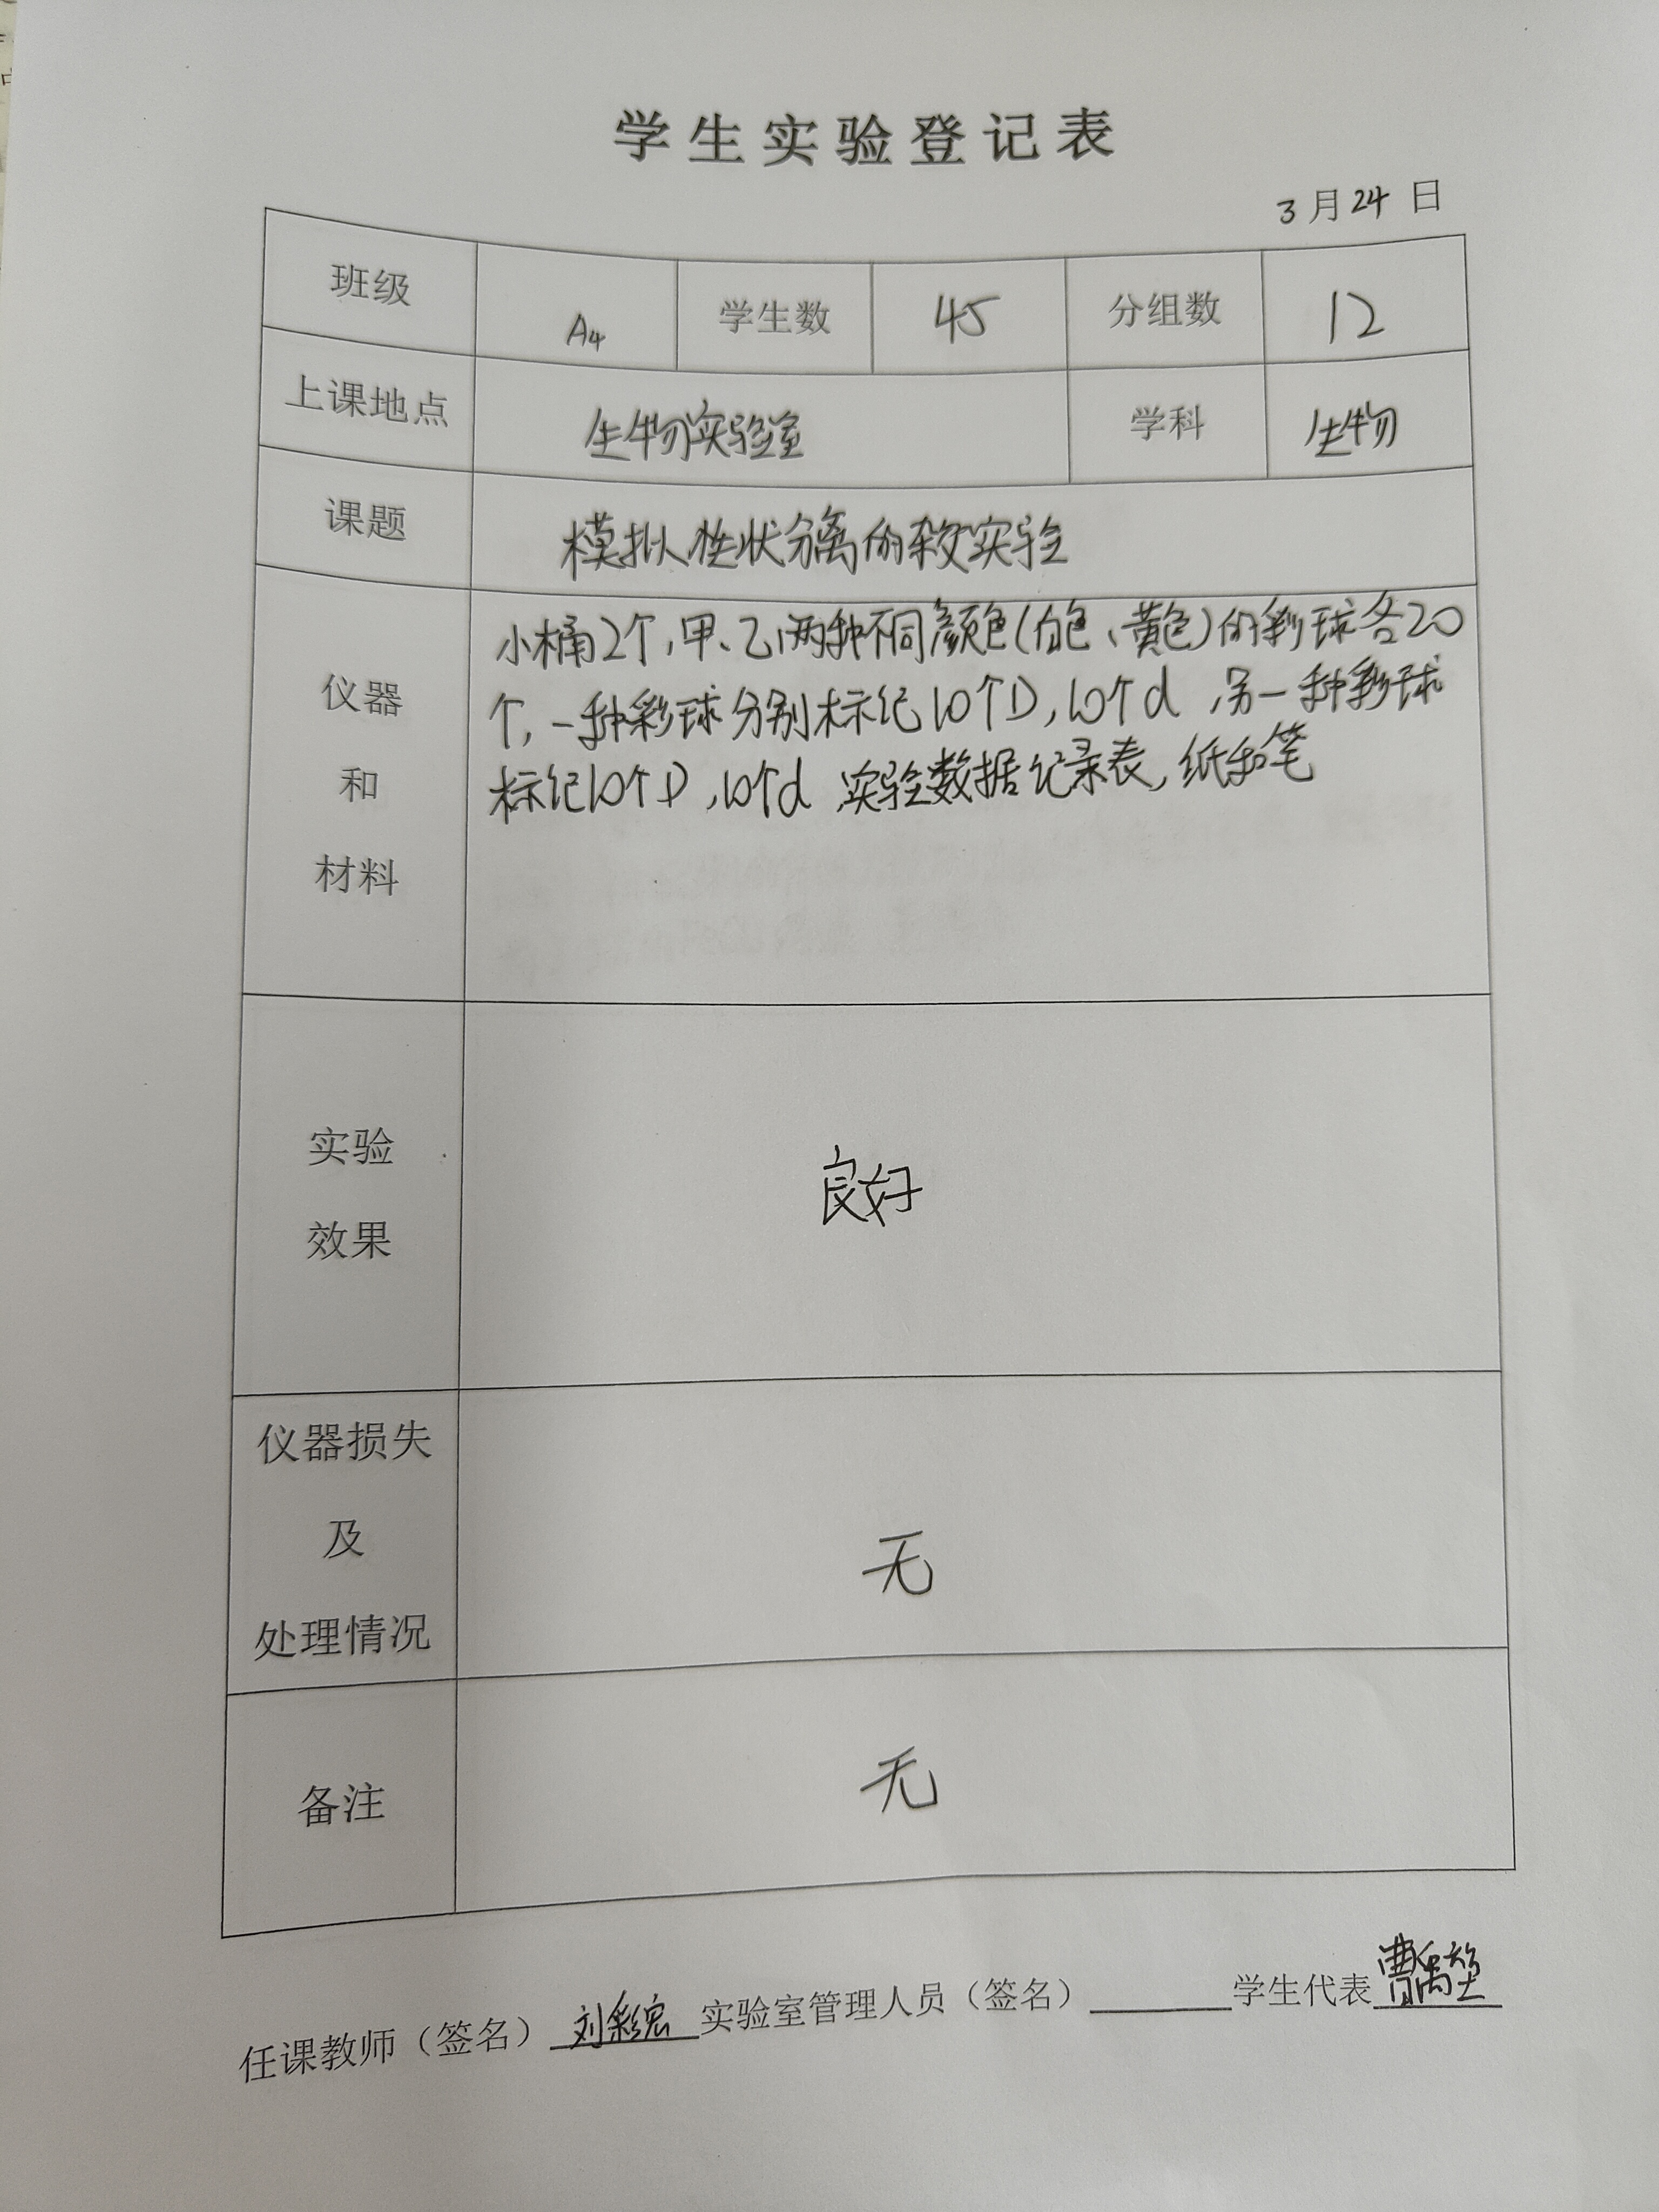 学生实验登记表
3月24日
班级 A4 学生数 45 分组数 12
上课地点 生物实验室 学科 生物
课题 模拟性状分离的杂交实验
仪器和材料
小桶2个,甲、乙两种不同颜色(白色、黄色)的彩球各20
个,一种彩球分别标记10个D,10个d,另一种彩球
标记10个D,10个d,实验数据记录表,纸和笔
实验效果 良好
仪器损失及处理情况 无
备注 无
任课教师（签名）刘彩宏 实验室管理人员（签名） 学生代表